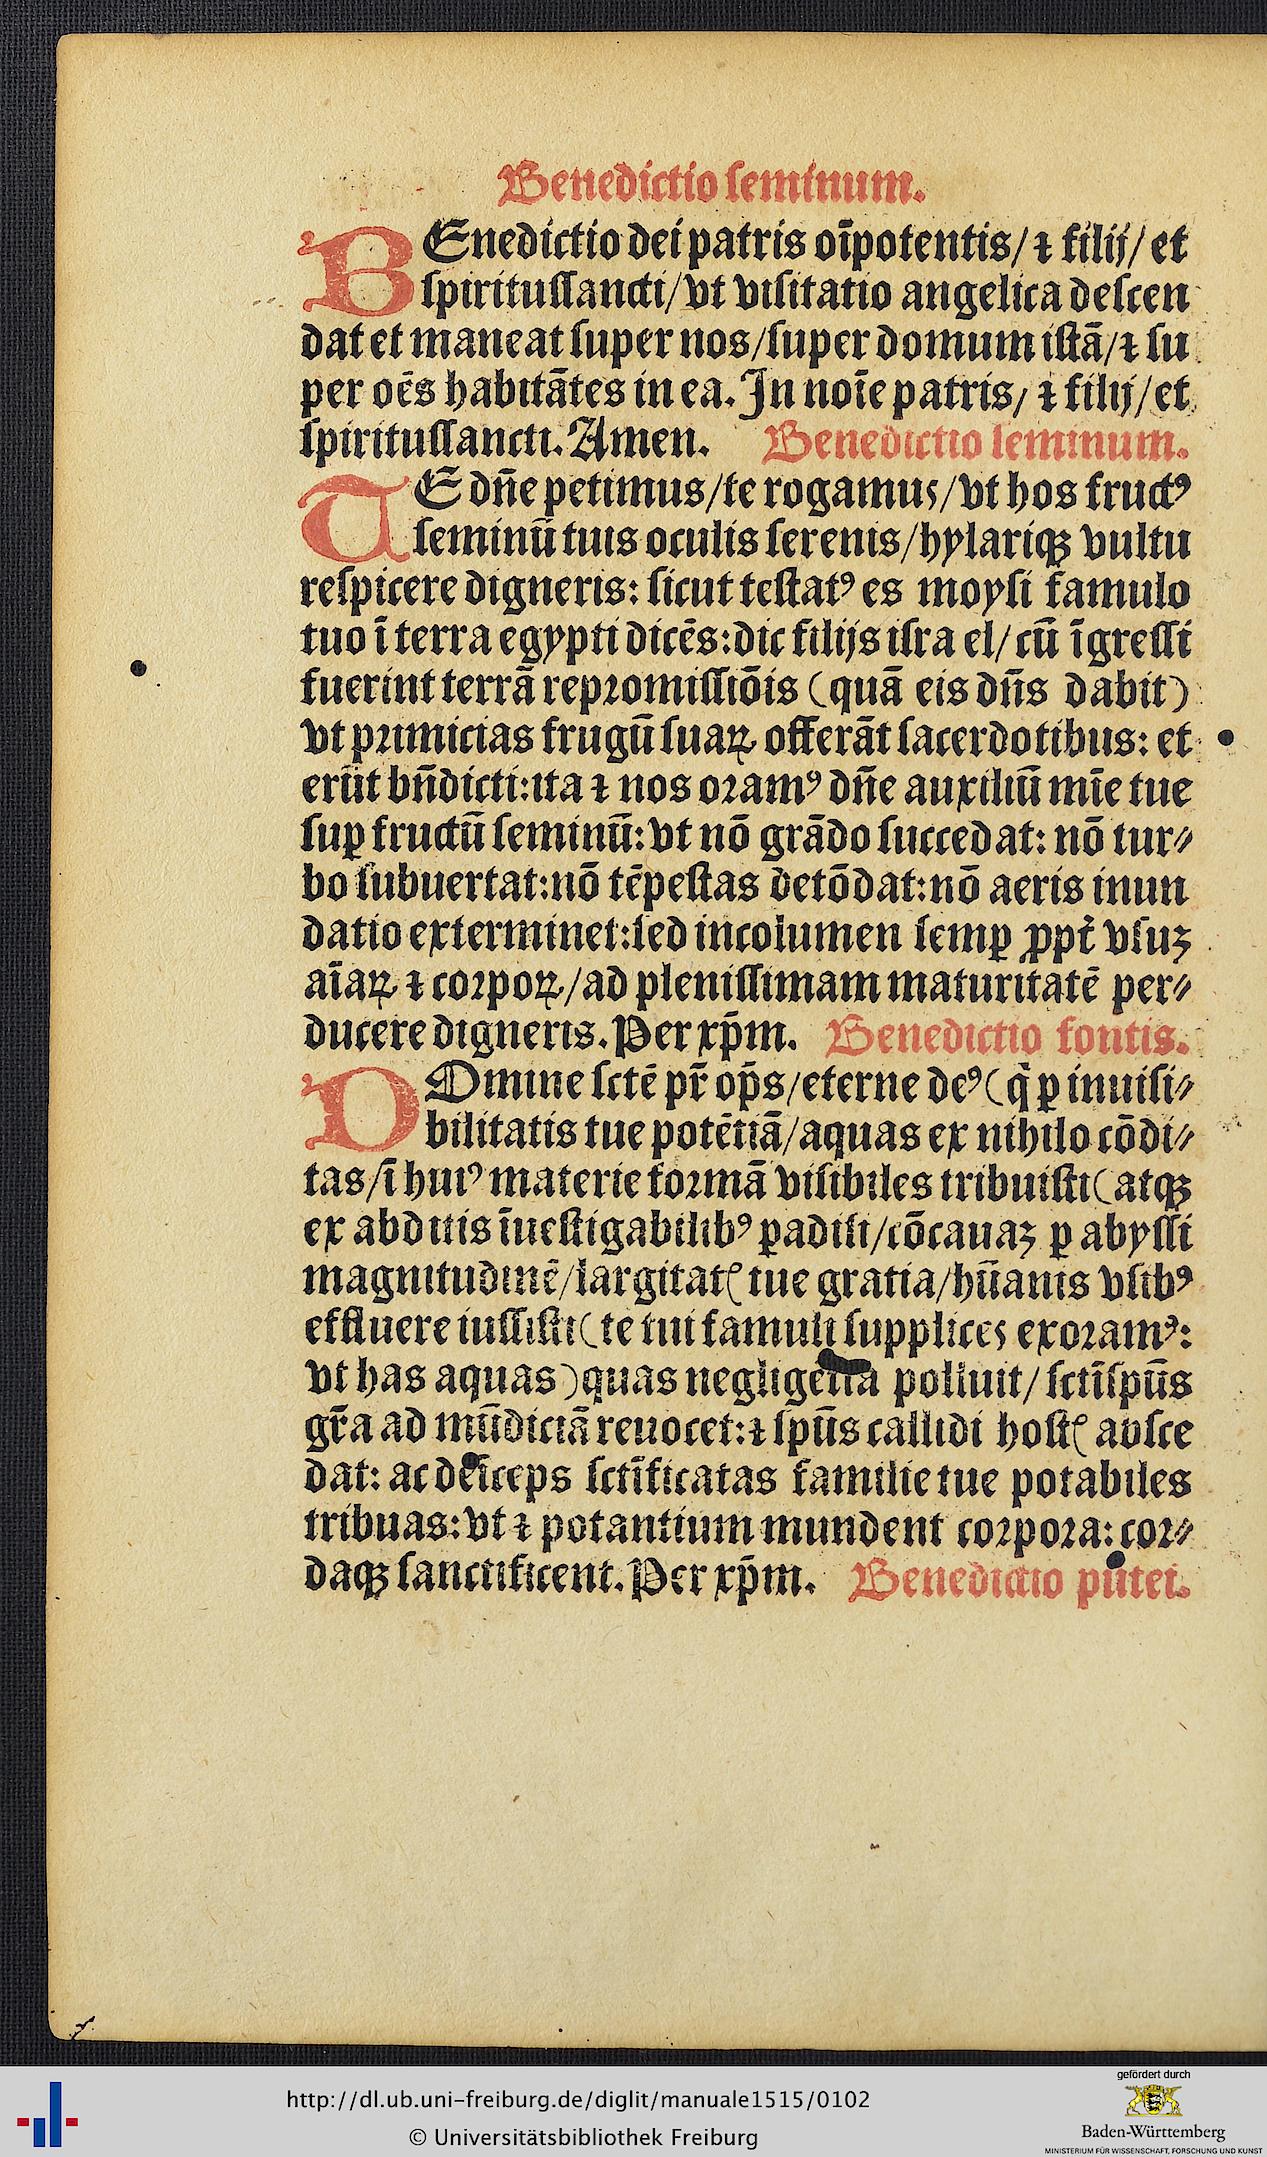 Benedictio seminum.
BEnedictio dei patris oīpotentis/ ⁊ filij/ et
spiritussancti/ vt visitatio angelica descen
dat et maneat super nos/ super domum istā/ ⁊ su
per oēs habitātes in ea. In noīe patris/ ⁊ filij/ et
spiritussancti. Amen. Benedictio seminum.
TE dn̄e petimus/ te rogamus/ vt hos fructꝰ
seminū tuis oculis serenis/ hylariqꝫ vultu
respicere digneris: sicut testatꝰ es moysi famulo
tuo ī terra egypti dicēs: dic filijs isra el/ cū īgressi
fuerint terrā repꝛomissiōis (quā eis dn̄s dabit)
vt pꝛimicias frugū suaꝝ offerāt sacerdotibus: et
erūt bn̄dicti: ita ⁊ nos oꝛamꝰ dn̄e auxiliū mīe tue
suꝑ fructū seminū: vt nō grādo succedat: nō tur⸗
bo subuertat: nō tēpestas detōdat: nō aeris inun
datio exterminet: sed incolumen semꝑ ꝓpt̄ vsuꝫ
aīaꝝ ⁊ coꝛpoꝝ/ ad plenissimam maturitatē per⸗
ducere digneris. Per xp̄m. Benedictio fontis.
DOmine sctē pr̄ op̄s/ eterne deꝰ (q̄ ꝑ inuisi⸗
bilitatis tue potētiā/ aquas ex nihilo cōdi⸗
tas/ ī huiꝰ materie foꝛmā visibiles tribuisti (atqꝫ
ex abditis īuestigabilibꝰ ꝑadisi/ cōcauaꝫ ꝑ abyssi
magnitudinē/ largitatꝭ tue gratia/ hūanis vsibꝰ
effluere iussisti (te tui famuli supplices exoꝛamꝰ:
vt has aquas) quas negligētia polluit/ sctīspūs
gr̄a ad mūdiciā reuocet: ⁊ spūs callidi hostꝭ absce
dat: ac deīceps sctīficatas familie tue potabiles
tribuas: vt ⁊ potantium mundent coꝛpoꝛa: coꝛ⸗
daqꝫ sanctificent. Per xp̄m. Benedictio putei.
http://dl.ub.uni-freiburg.de/diglit/manuale1515/0102
© Universitätsbibliothek Freiburg
gefördert durch
Baden-Württemberg
MINISTERIUM FÜR WISSENSCHAFT, FORSCHUNG UND KUNST